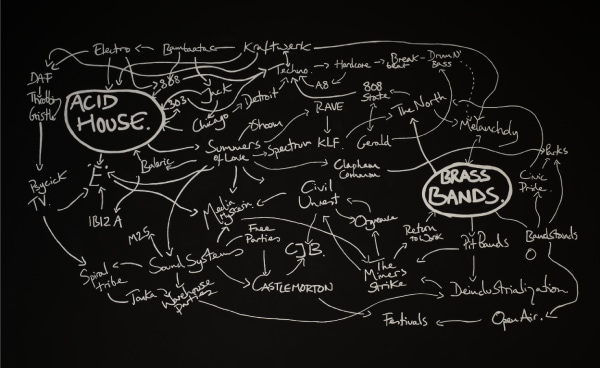 Electro
Bambaataa
Kraftwerk
DAF
Throbbing
Gristle
808
Techno.
Hardcore
Break-
beat
Drum N'
Bass
ACID
HOUSE.
303
Jack
Detroit
A8
808
State
Chicago
RAVE
The North
Melancholy
Shoom
Summers
of Love
Spectrum
KLF.
Gerald
Parks
Balaric
Clapham
Common
E
BRASS
BANDS.
Civic
Pride.
Psychick
TV.
IBIZA
Media
Hysteria
Civil
Unrest
M25
Free
Parties
Orgreave
Return
to Work
Pit Bands
BandStands
O
CJB.
Spiral
tribe
Sound Systems
The
Miner's
Strike
Tonka
Warehouse
Parties
CASTLEMORTON
Deindustrialization
Festivals
Open Air.